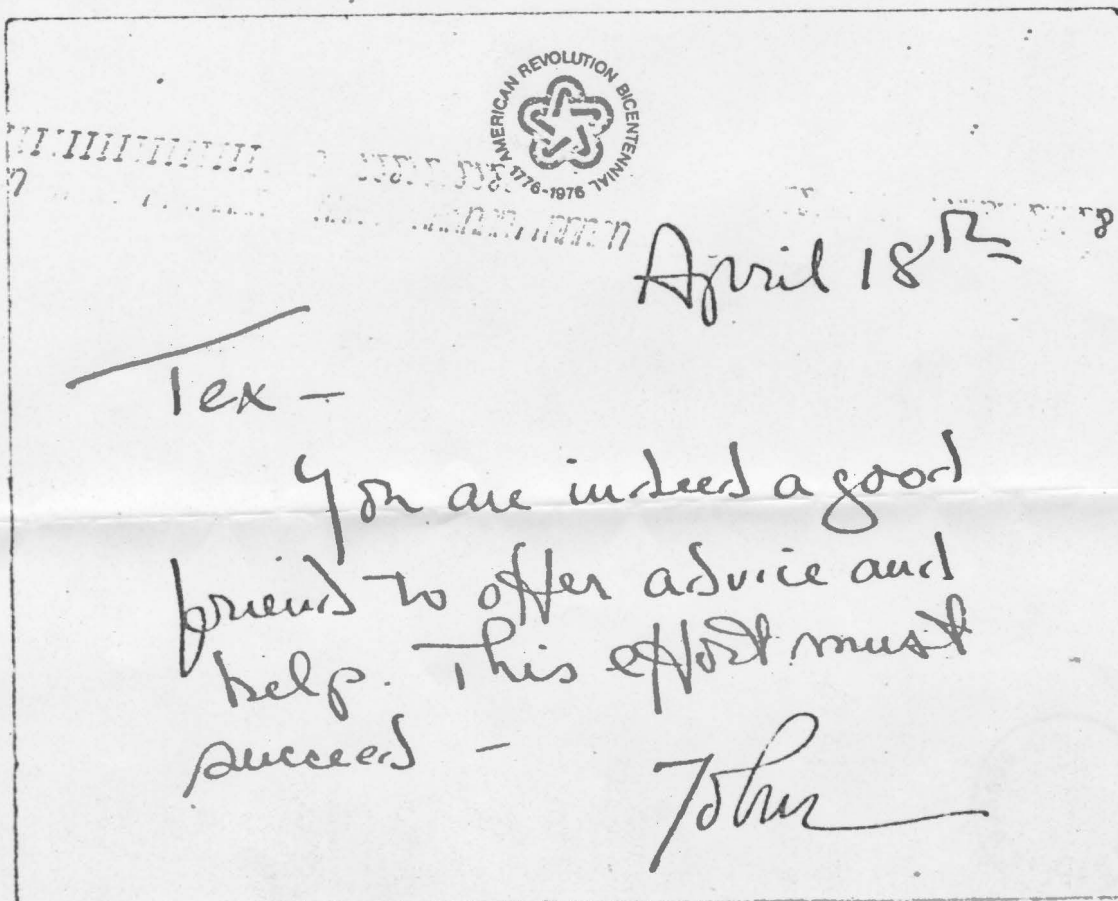 AMERICAN REVOLUTION BICENTENNIAL
1776-1976
April 18th
Tex -
You are indeed a good
friend to offer advice and
help. This effort must
succeed -
John